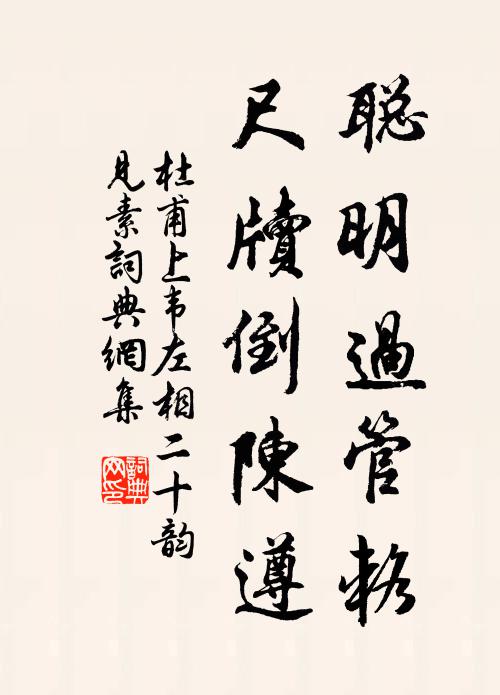 聪明過管輅
尺牘倒陳遵
杜甫上韦左相二十韵
見素詞典網集
詞典
网印